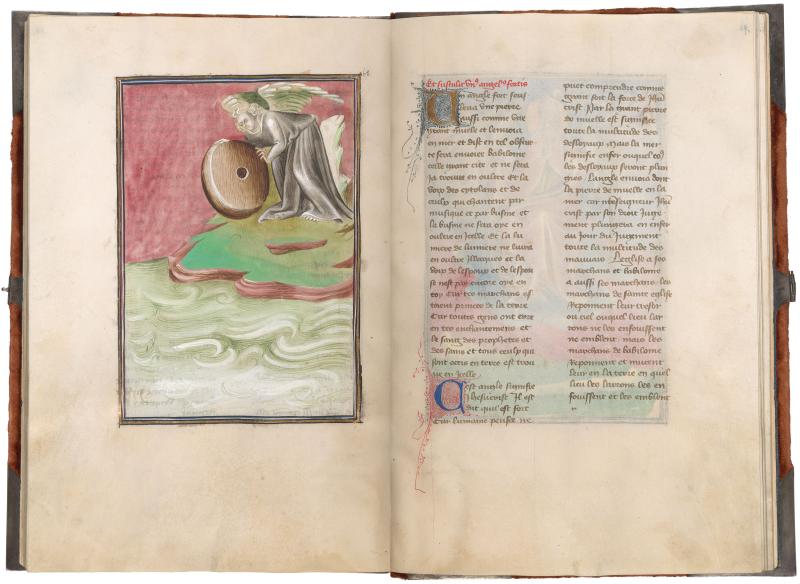 Et sustulit unus angelus fortis
Un angle fort sous
leua une pierre
aussi comme une
grant muele et lenuoia
en mer et dist en tel obscur
te sera enuoiee babilonne
celle grant cite et ne sera
ia trouuee en oultre et la
voix des cytolans et de
ceulx qui chantent par
musique et par busine et
le busine ne sera oye en
oultre en icelle Et la lu
miere de lumiere ne luira
en oultre illecques et la
voix de lespoux et de lespou
se nest pas encore oye en
toy Car tes marchans es
toient prince de la terre
Car toutes gens ont erre
en tes enchantemens et
le sang des prophetes et
des sains et tous ceulx qui
sont occis en terre est trou
ue en icelle
Cest angle signifie
ihesucrist Il est
dit quil est fort
Car humaine pensee ne
puet comprendre comme
grant soit la force de Jhu
crist Par la grant pierre
de muelle est signifiee
toute la multitude des
desloyaux Mais la mer
signifie enfer ouquel
les desloyaux seront plun
gies Langle enuoia dont
la pierre de muelle en la
mer car nostre seigneur Jhu
crist par son droit Juge
ment plungera en enfer
au Jour du Jugement
toute la multitude des
mauuais Leglise a ses
marchans et babilonne
a aussi ses marchans les
marchans de sainte eglise
Reponnent leur tresor
ou ciel ouquel lieu lar
rons ne les enfouissent
ne emblent mais les
marchans de babilonne
Reponnent et mucent
leur en la terre en quel
lieu les larrons les en
fouissent et les emblent